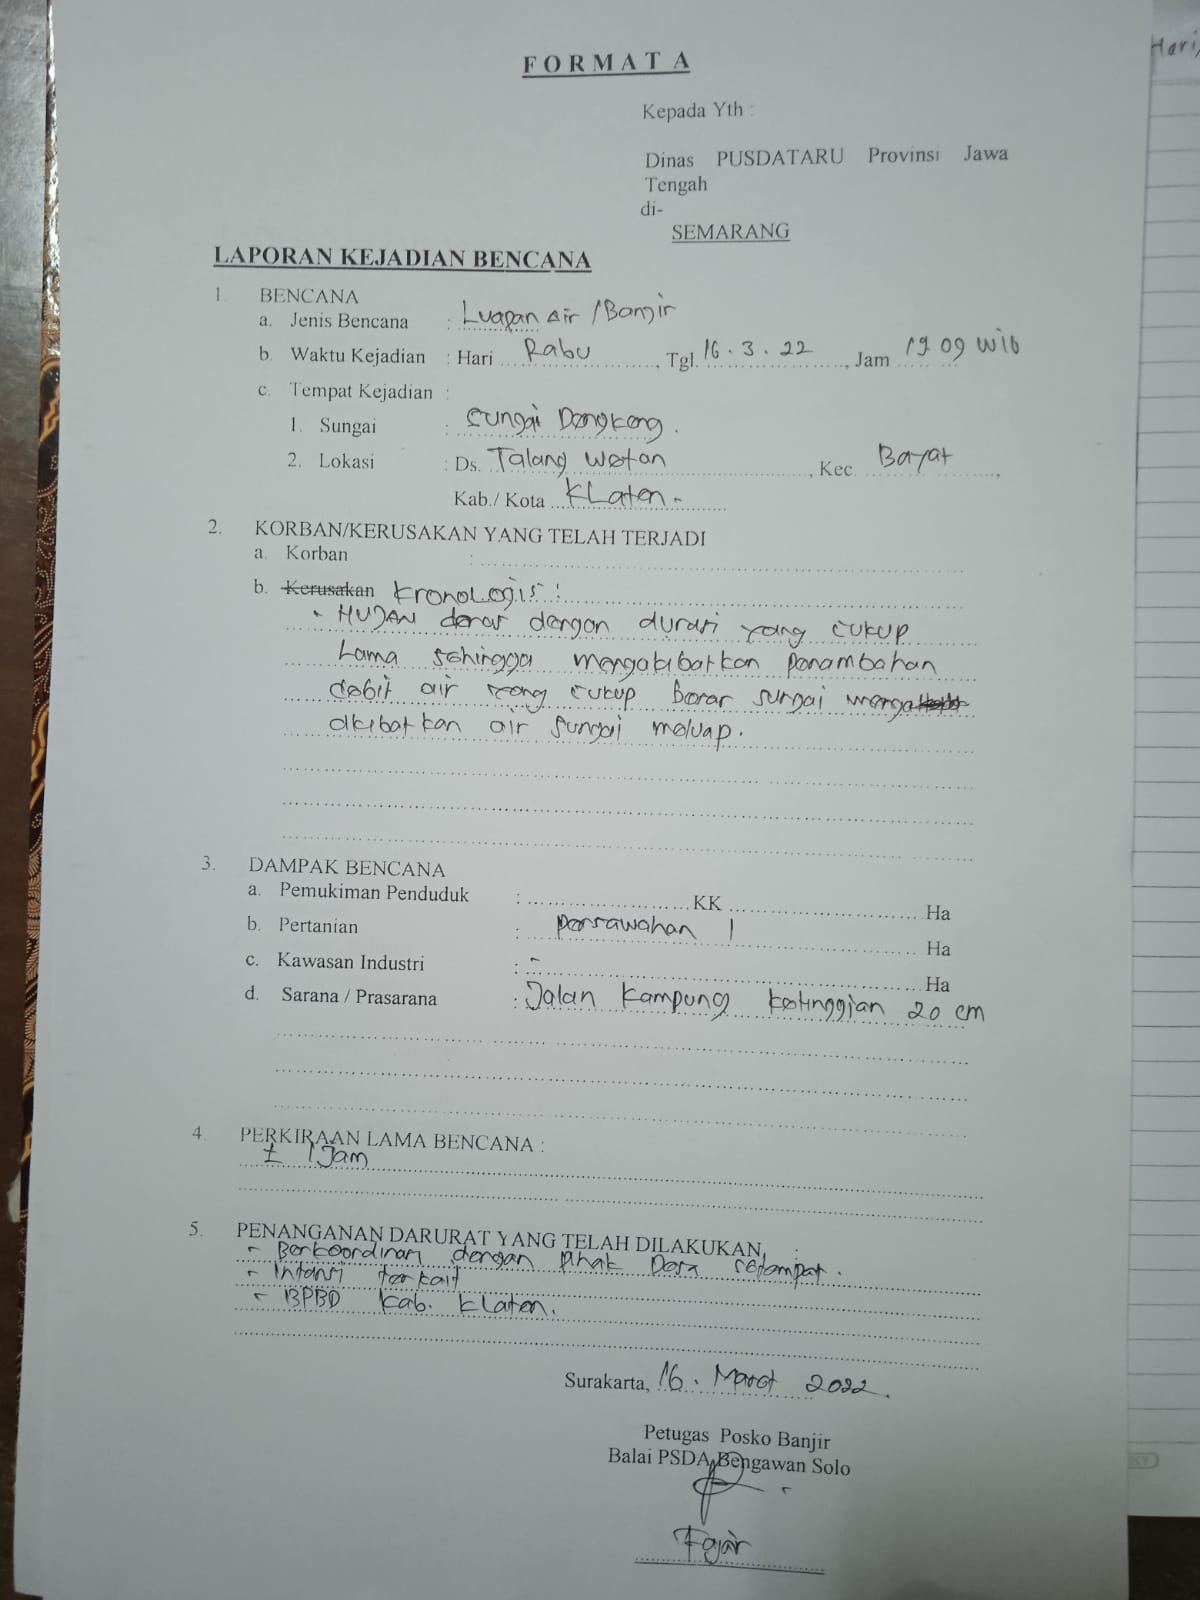 Hari,
FORMAT A
Kepada Yth :
Dinas PUSDATARU Provinsi Jawa
Tengah
di-
SEMARANG
LAPORAN KEJADIAN BENCANA
1. BENCANA
a. Jenis Bencana : Luapan Air / Banjir
b. Waktu Kejadian : Hari Rabu, Tgl. 16 . 3 . 22, Jam 19 09 WIB
c. Tempat Kejadian :
1. Sungai : Sungai Dengkeng.
2. Lokasi : Ds. Talang Wetan, Kec Bayat,
Kab./ Kota Klaten -
2. KORBAN/KERUSAKAN YANG TELAH TERJADI
a. Korban :
b. Kerusakan Kronologis :
- HUJAN deras dengan durasi yang cukup
Lama sehingga mengakibatkan penambahan
debit air yang cukup besar sungai menga
akibatkan air sungai meluap.
3. DAMPAK BENCANA
a. Pemukiman Penduduk : KK Ha
b. Pertanian : persawahan 1 Ha
c. Kawasan Industri : - Ha
d. Sarana / Prasarana : Jalan Kampung ketinggian 20 cm
4. PERKIRAAN LAMA BENCANA :
± 1 Jam
5. PENANGANAN DARURAT YANG TELAH DILAKUKAN :
- Berkoordinasi dengan pihak Desa setempat.
- Intansi terkait
- BPBD Kab. Klaten.
Surakarta, 16 . Maret 2022 .
Petugas Posko Banjir
Balai PSDA Bengawan Solo
Fajar